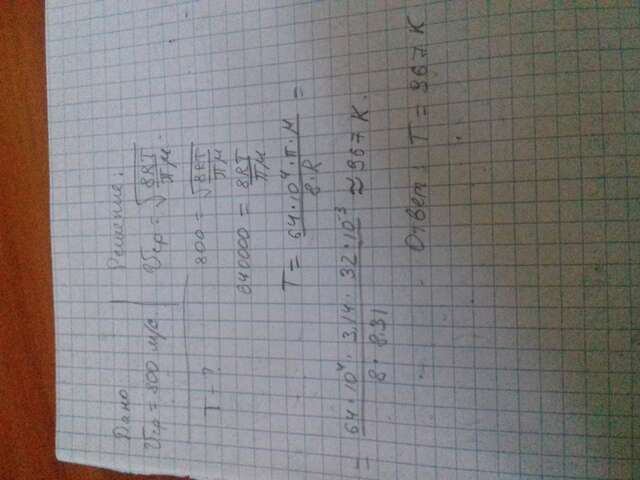 Дано
Vср = 800 м/с.
T - ?
Решение:
Vср = √(8RT/πμ).
800 = √(8RT/πμ)
640000 = 8RT/πμ
T = 64·10⁴·π·μ / 8·R =
= 64·10⁴·3,14·32·10⁻³ / 8·8,31 ≈ 967 К.
Ответ: T = 967 К